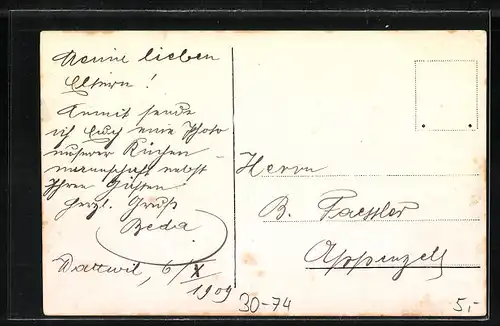 Meine lieben
Eltern!
Anmit sende
ich Euch eine Photo
unserer Küchen
mannschaft nebst
Ihren Gästen!
Herzl. Gruß
Beda
Dattwil, 6/X
1909
Herrn
B. Faessler
Appenzell
30-74
5,-